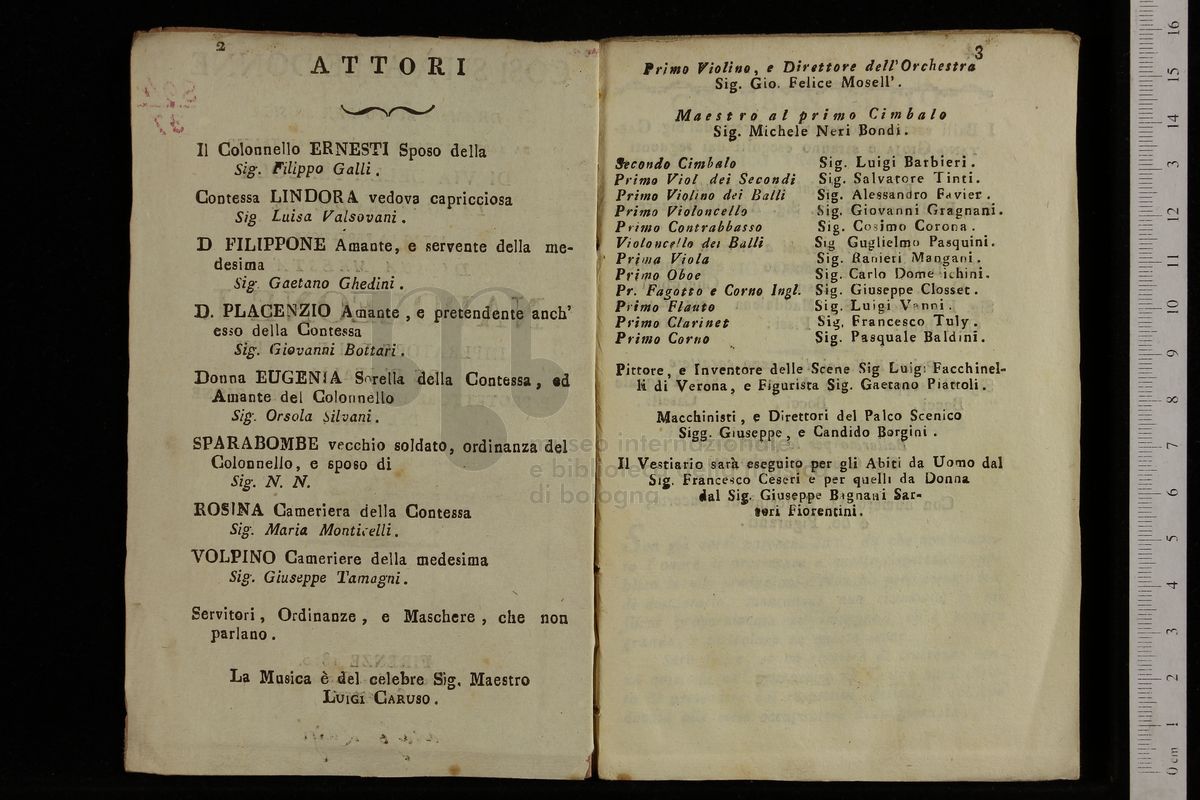 2
ATTORI
Il Colonnello ERNESTI Sposo della
Sig. Filippo Galli.
Contessa LINDORA vedova capricciosa
Sig Luisa Valsovani.
D FILIPPONE Amante, e servente della me-
desima
Sig. Gaetano Ghedini.
D. PLACENZIO Amante, e pretendente anch'
esso della Contessa
Sig. Giovanni Bottari.
Donna EUGENIA Sorella della Contessa, ed
Amante del Colonnello
Sig. Orsola Silvani.
SPARABOMBE vecchio soldato, ordinanza del
Colonnello, e sposo di
Sig. N. N.
ROSINA Cameriera della Contessa
Sig. Maria Monticelli.
VOLPINO Cameriere della medesima
Sig. Giuseppe Tamagni.
Servitori, Ordinanze, e Maschere, che non
parlano.
La Musica è del celebre Sig. Maestro
LUIGI CARUSO.
3
Primo Violino, e Direttore dell'Orchestra
Sig. Gio. Felice Mosell'.
Maestro al primo Cimbalo
Sig. Michele Neri Bondi.
Secondo Cimbalo Sig. Luigi Barbieri.
Primo Viol dei Secondi Sig. Salvatore Tinti.
Primo Violino dei Balli Sig. Alessandro Favier.
Primo Violoncello Sig. Giovanni Gragnani.
Primo Contrabbasso Sig. Cosimo Corona.
Violoncello dei Balli Sig Guglielmo Pasquini.
Prima Viola Sig. Ranieri Mangani.
Primo Oboe Sig. Carlo Dome ichini.
Pr. Fagotto e Corno Ingl. Sig. Giuseppe Closset.
Primo Flauto Sig. Luigi Vanni.
Primo Clarinet Sig. Francesco Tuly.
Primo Corno Sig. Pasquale Baldini.
Pittore, e Inventore delle Scene Sig Luigi Facchinel-
li di Verona, e Figurista Sig. Gaetano Piattoli.
Macchinisti, e Direttori del Palco Scenico
Sigg. Giuseppe, e Candido Borgini.
Il Vestiario sarà eseguito per gli Abiti da Uomo dal
Sig. Francesco Ceseri e per quelli da Donna
dal Sig. Giuseppe Bagnani Sar-
tori Fiorentini.
museo internazionale
e biblioteca della musica
di bologna
0 cm 1 2 3 4 5 6 7 8 9 10 11 12 13 14 15 16